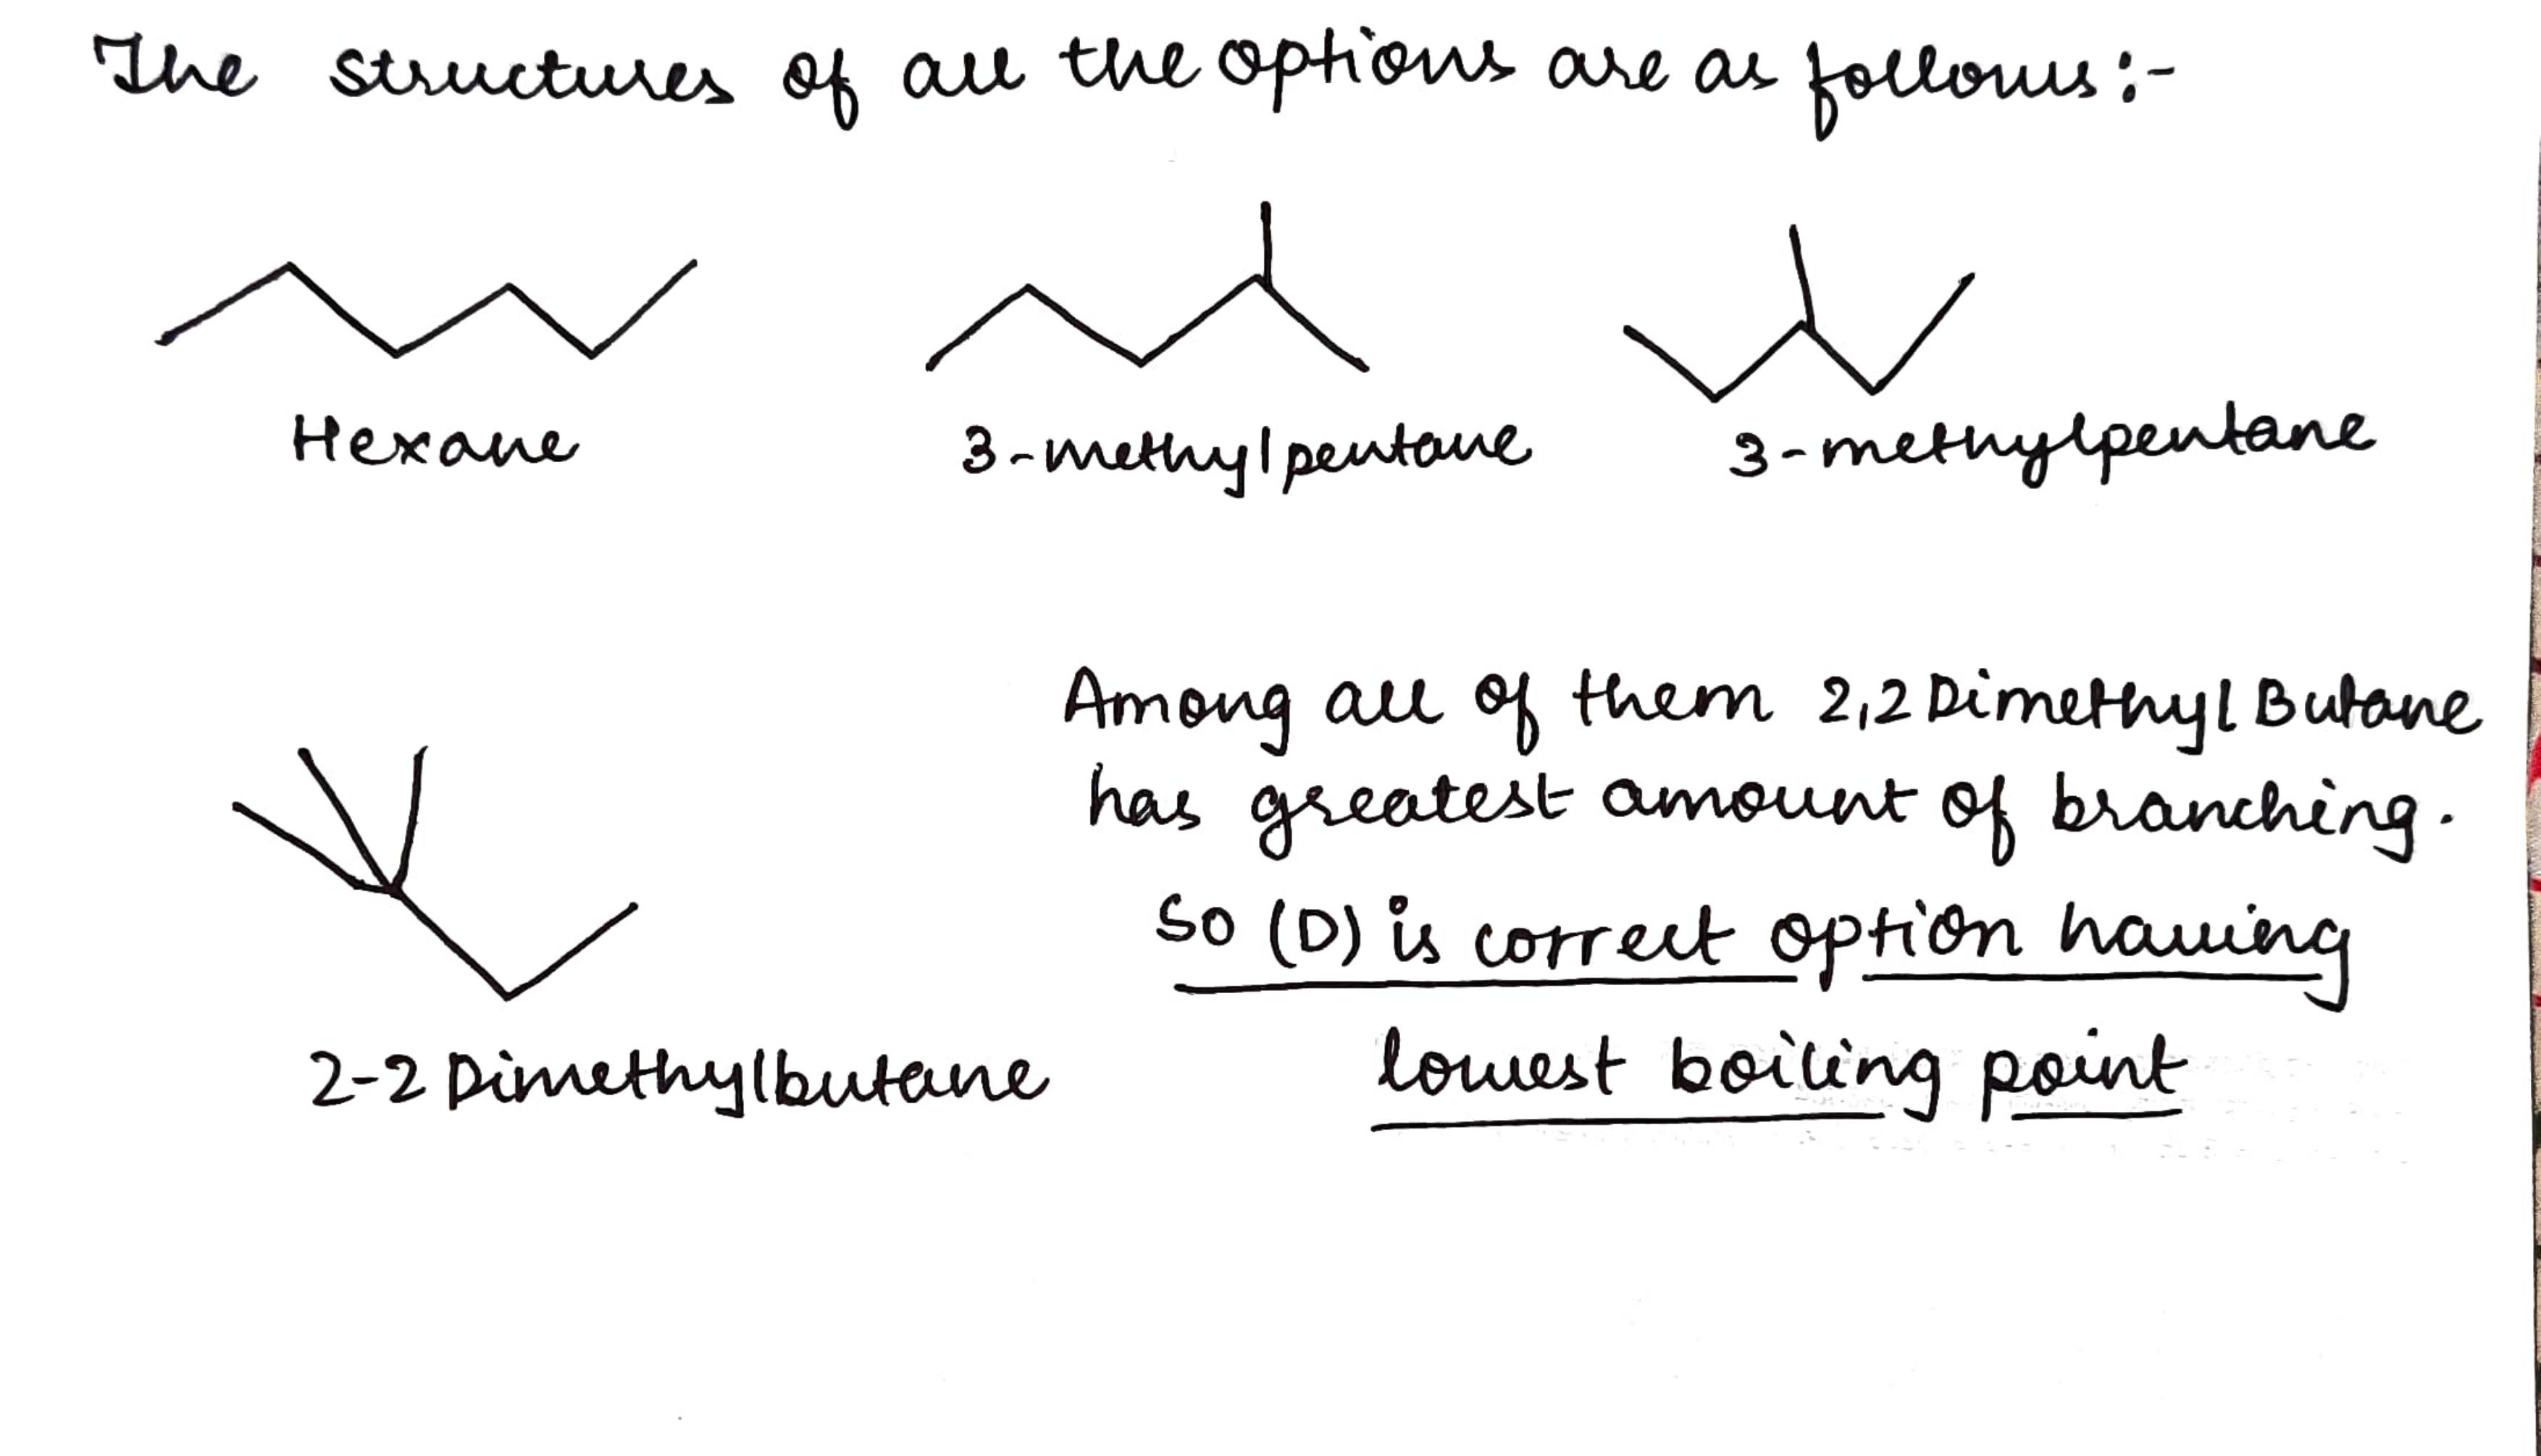 The structures of all the options are as follows:-
Hexane
3-methylpentane
3-methylpentane
2-2 Dimethylbutane
Among all of them 2,2 Dimethyl Butane
has greatest amount of branching.
So (D) is correct option having
lowest boiling point